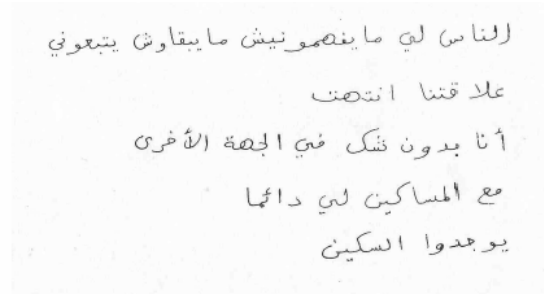 الناس لي ما يفهمونيش ما يبقاوش يتبعوني
علاقتنا انتهت
أنا بدون شك في الجهة الأخرى
مع المساكين لي دائما
يوجدوا السكين